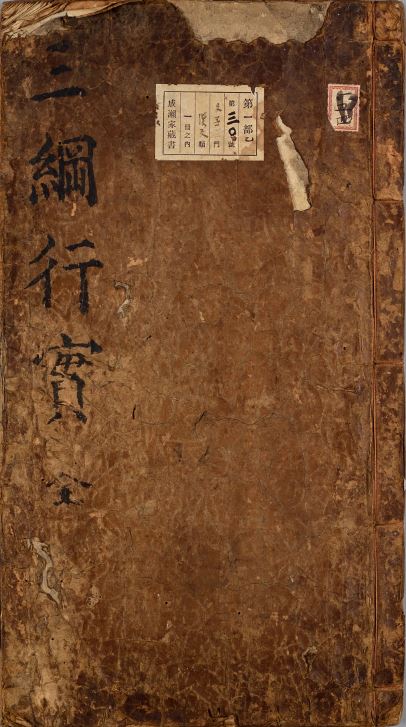 三綱行實 全
第一部
第三〇號
門
漢文類
一冊之內
成瀬家藏書